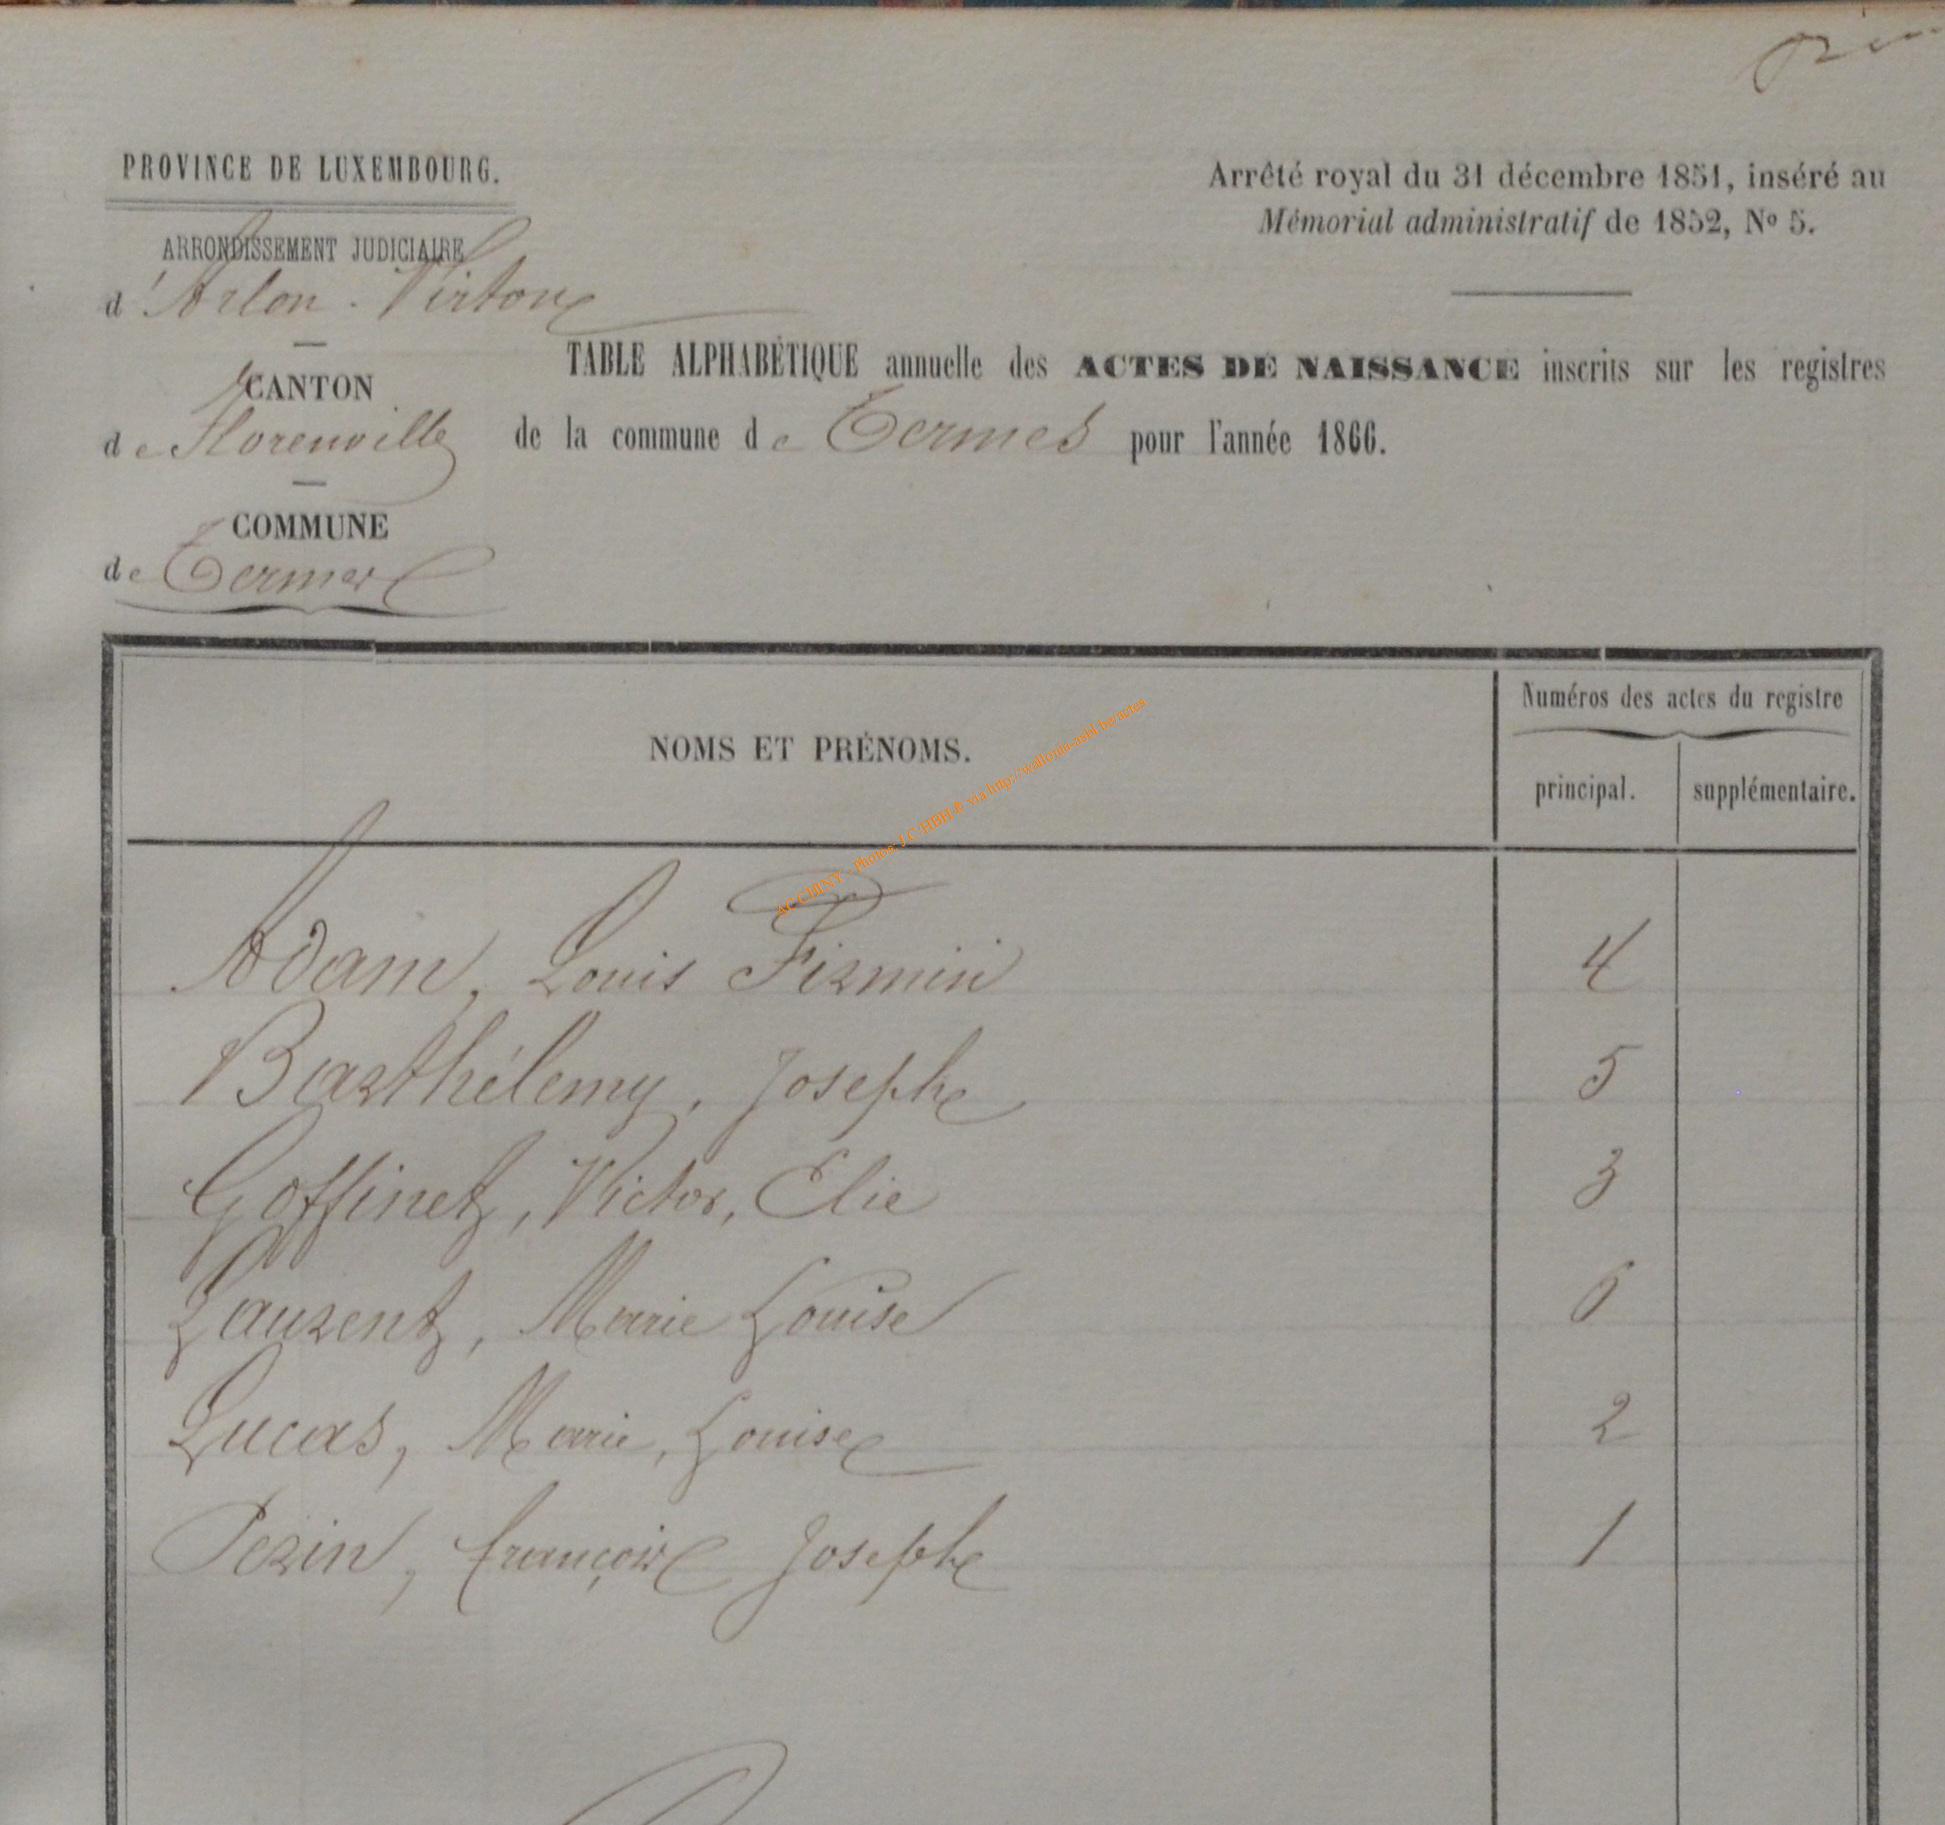 PROVINCE DE LUXEMBOURG.
ARRONDISSEMENT JUDICIAIRE
d'Arlon - Virton
CANTON
de Florenville
COMMUNE
de Termes
Arrêté royal du 31 décembre 1851, inséré au
Mémorial administratif de 1852, No 5.
TABLE ALPHABÉTIQUE annuelle des ACTES DE NAISSANCE inscrits sur les registres
de la commune de Termes pour l'année 1866.
NOMS ET PRÉNOMS.
Numéros des actes du registre
principal. supplémentaire.
Adam, Louis Firmin 4
Barthélemy, Joseph 5
Goffinet, Victor, Elie 3
Laurent, Marie Louise 6
Lucas, Marie, Louise 2
Perin, François Joseph 1
Photos J.C HBH © via http://wallonia-asbl.be/actes